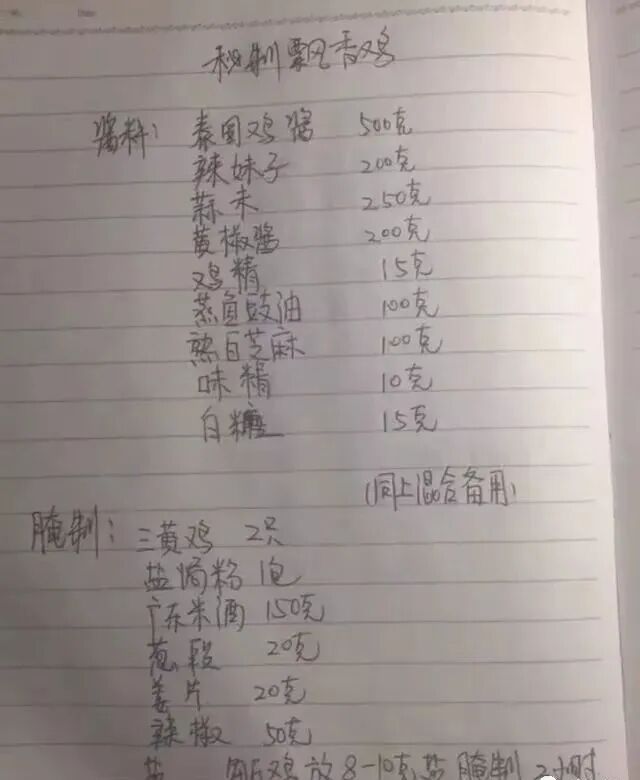 秘制飘香鸡
酱料: 泰国鸡酱 500克
辣妹子 200克
蒜未 250克
黄椒酱 200克
鸡精 15克
蒸鱼豉油 100克
熟白芝麻 100克
味精 10克
白糖 15克
(同上混合备用)
腌制: 三黄鸡 2只
盐焗粉 1包
广东米酒 150克
葱段 20克
姜片 20克
辣椒 50克
盐 每斤鸡放8-10克盐 腌制2小时